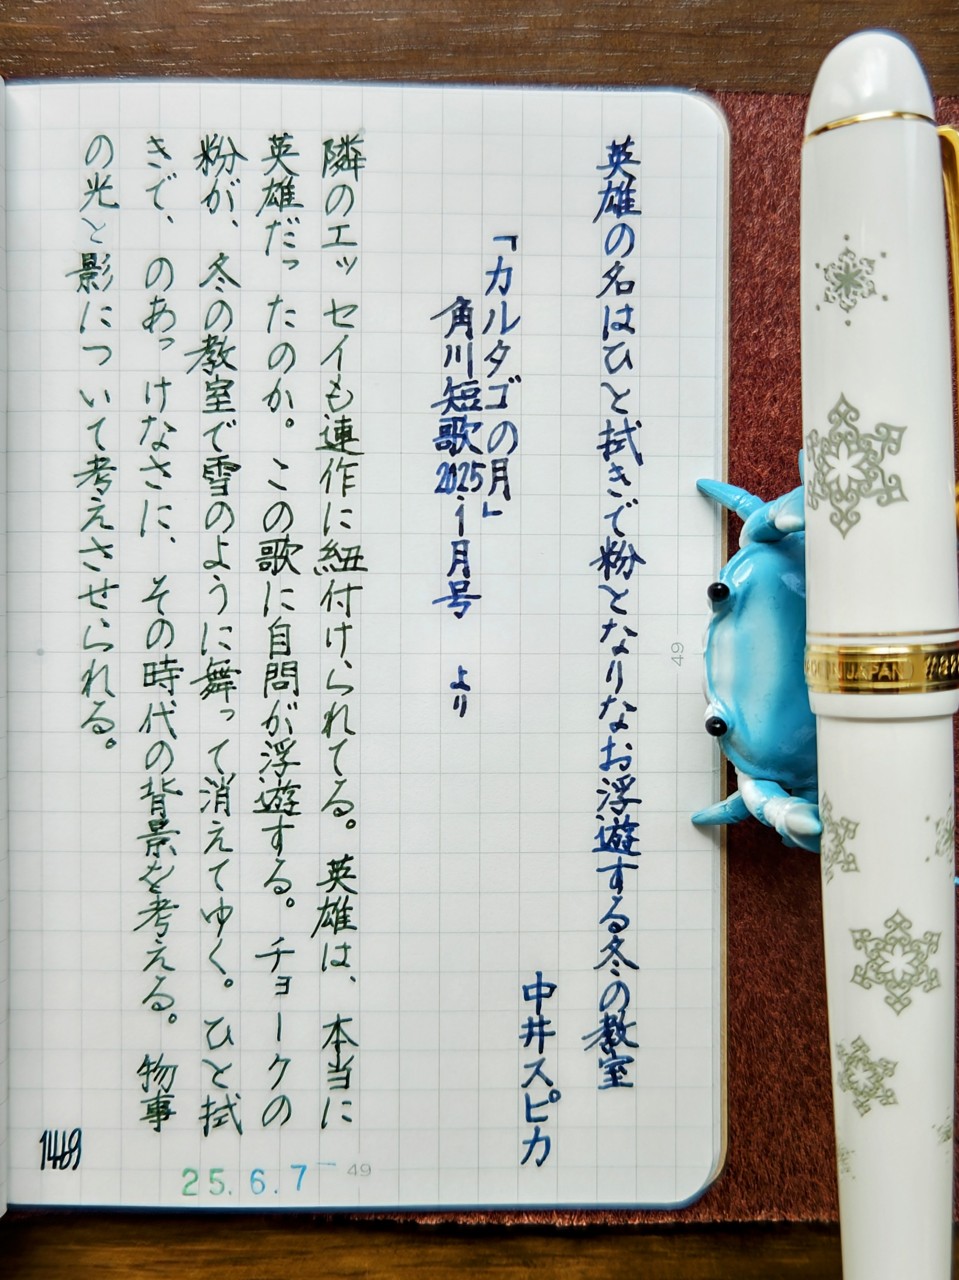 英雄の名はひと拭きで粉となりなお浮遊する冬の教室
中井スピカ
「カルタゴの月」
角川短歌2025年1月号 より
隣のエッセイも連作に紐付けられてる。英雄は、本当に
英雄だったのか。この歌に自問が浮遊する。チョークの
粉が、冬の教室で雪のように舞って消えてゆく。ひと拭
きで、のあっけなさに、その時代の背景を考える。物事
の光と影について考えさせられる。
1469
25.6.7
49
49
JAPAN